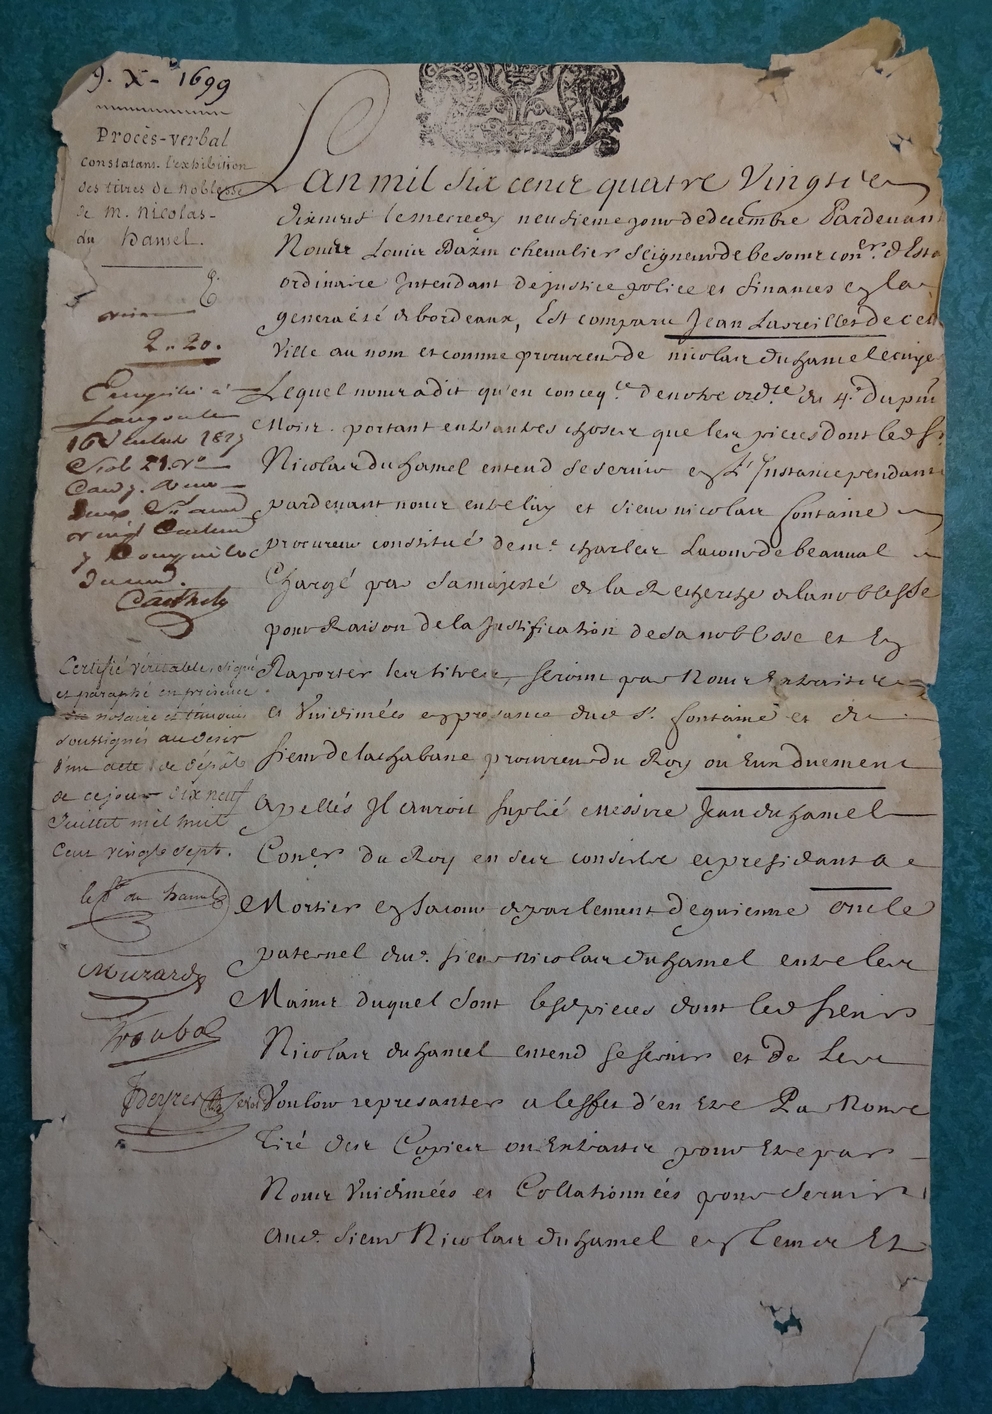 9. X- 1699
Procès-verbal
constatans. l'exhibition
des titres de Noblesse
de M. Nicolas-
du hamel.
2-20.
Certifié véritable, signé
et paraphé en présence
notaire et témoins
soussignés au desir
d'un acte de dépôt
de ce jour dix neuf
Juillet mil huit
cent vingt sept.
du hamel
L an mil six cents quatre Vingts
dixneuf le mercredy neufieme jour de decembre Pardevant
Nous Louis Bazin chevalier seigneur de besons con.er d'Esta
ordinaire Intendant de justice police et finances en la
generalité de bordeaux, Est comparu Jean Lasreilles de cet
Ville au nom et comme procureur de nicolas duhamel ecuye
Lequel nous a dit qu'en conseq.ce de notre ord.ce du 4.e du pñt
Mois. portant entr'autres choses que les pieces dont led s.r
Nicolas duhamel entend se servir en l'Instance pendante
pardevant nous entre luy et sieur nicolas fontaine
procureur constitué de m.e charles Lacour de beauval
Chargé par sa majesté de la Recherche de la noblesse
pour Raison de la Justification de sa noblesse et En
Raporter les titres, seront par Nous Extraittes
et Vuidimées en presance dud s.r fontaine et du
sieur de lachabane procureur du Roy ou Eux duement
apellés Il auroit suplié messire Jean duhamel
Con.er du Roy en ses conseils et president a
Mortier en sa cour de parlement de guienne oncle
paternel dud. sieur nicolas duhamel entre les
Mains duquel sont lesd pieces dont led sieur
Nicolas duhamel entend se servir et de les
Vouloir represanter a leffet d'en Etre Par Nous
Tiré des Copies ou Extraits pour Etre par
Nous Vuidimées et Collationnées pour servir
aud. sieur Nicolas duhamel en Tems et